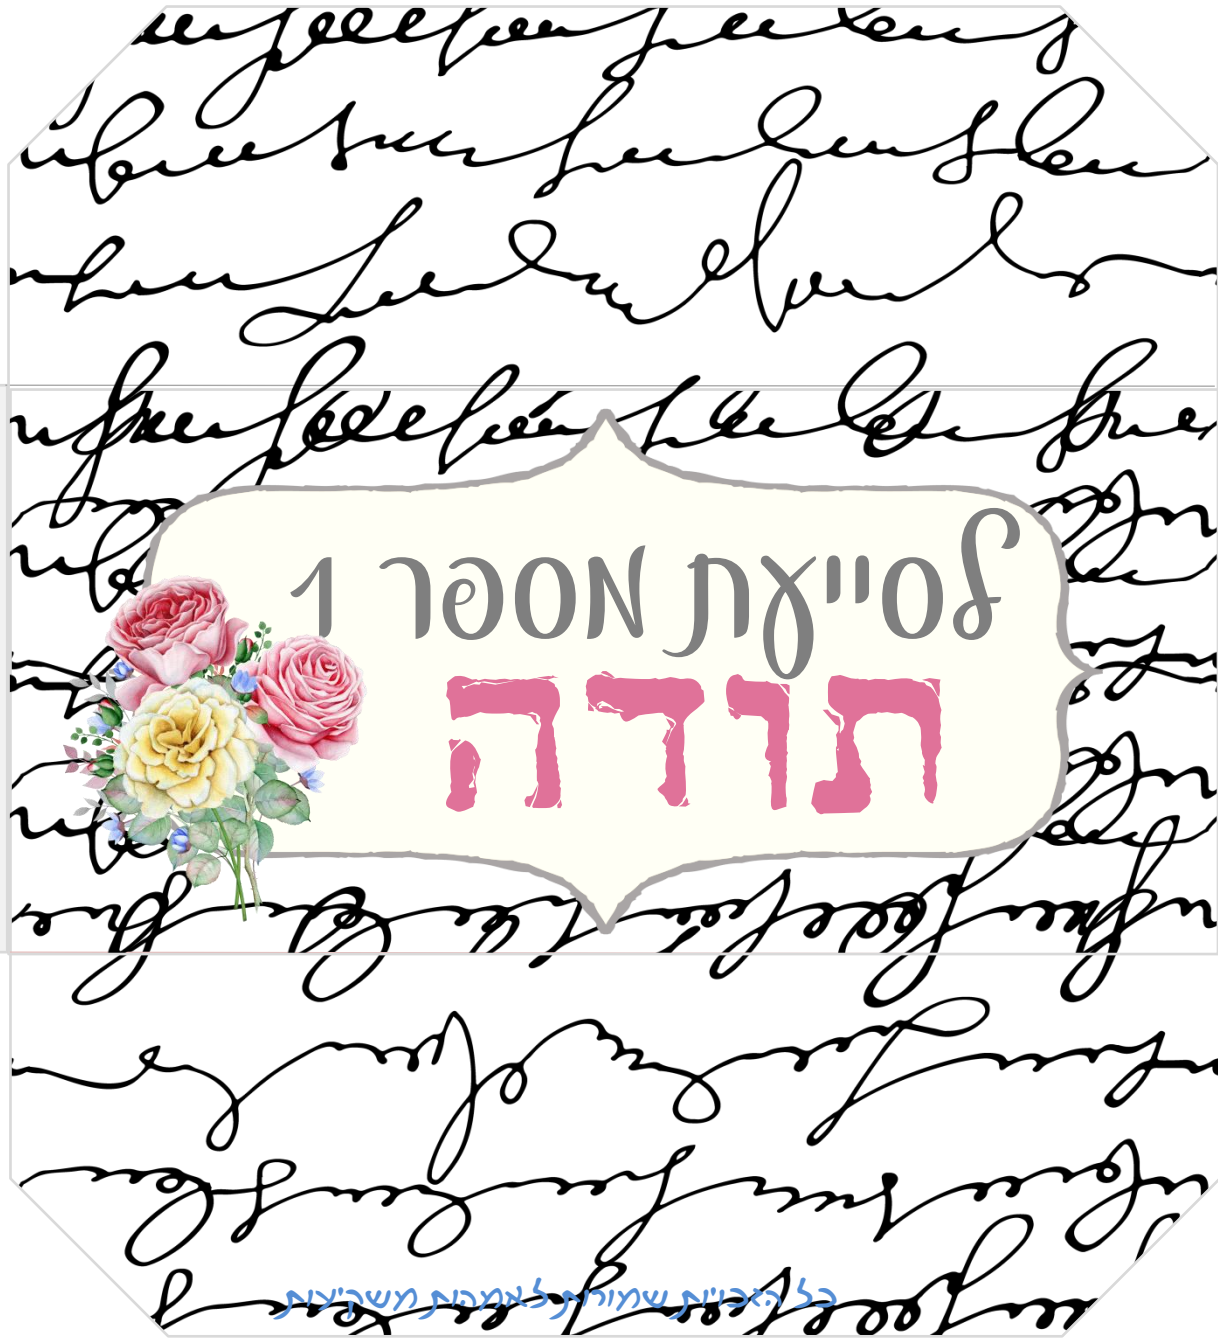 לסייעת מספר 1
תודה
כל הזכויות שמורות לאמהות משקיעות